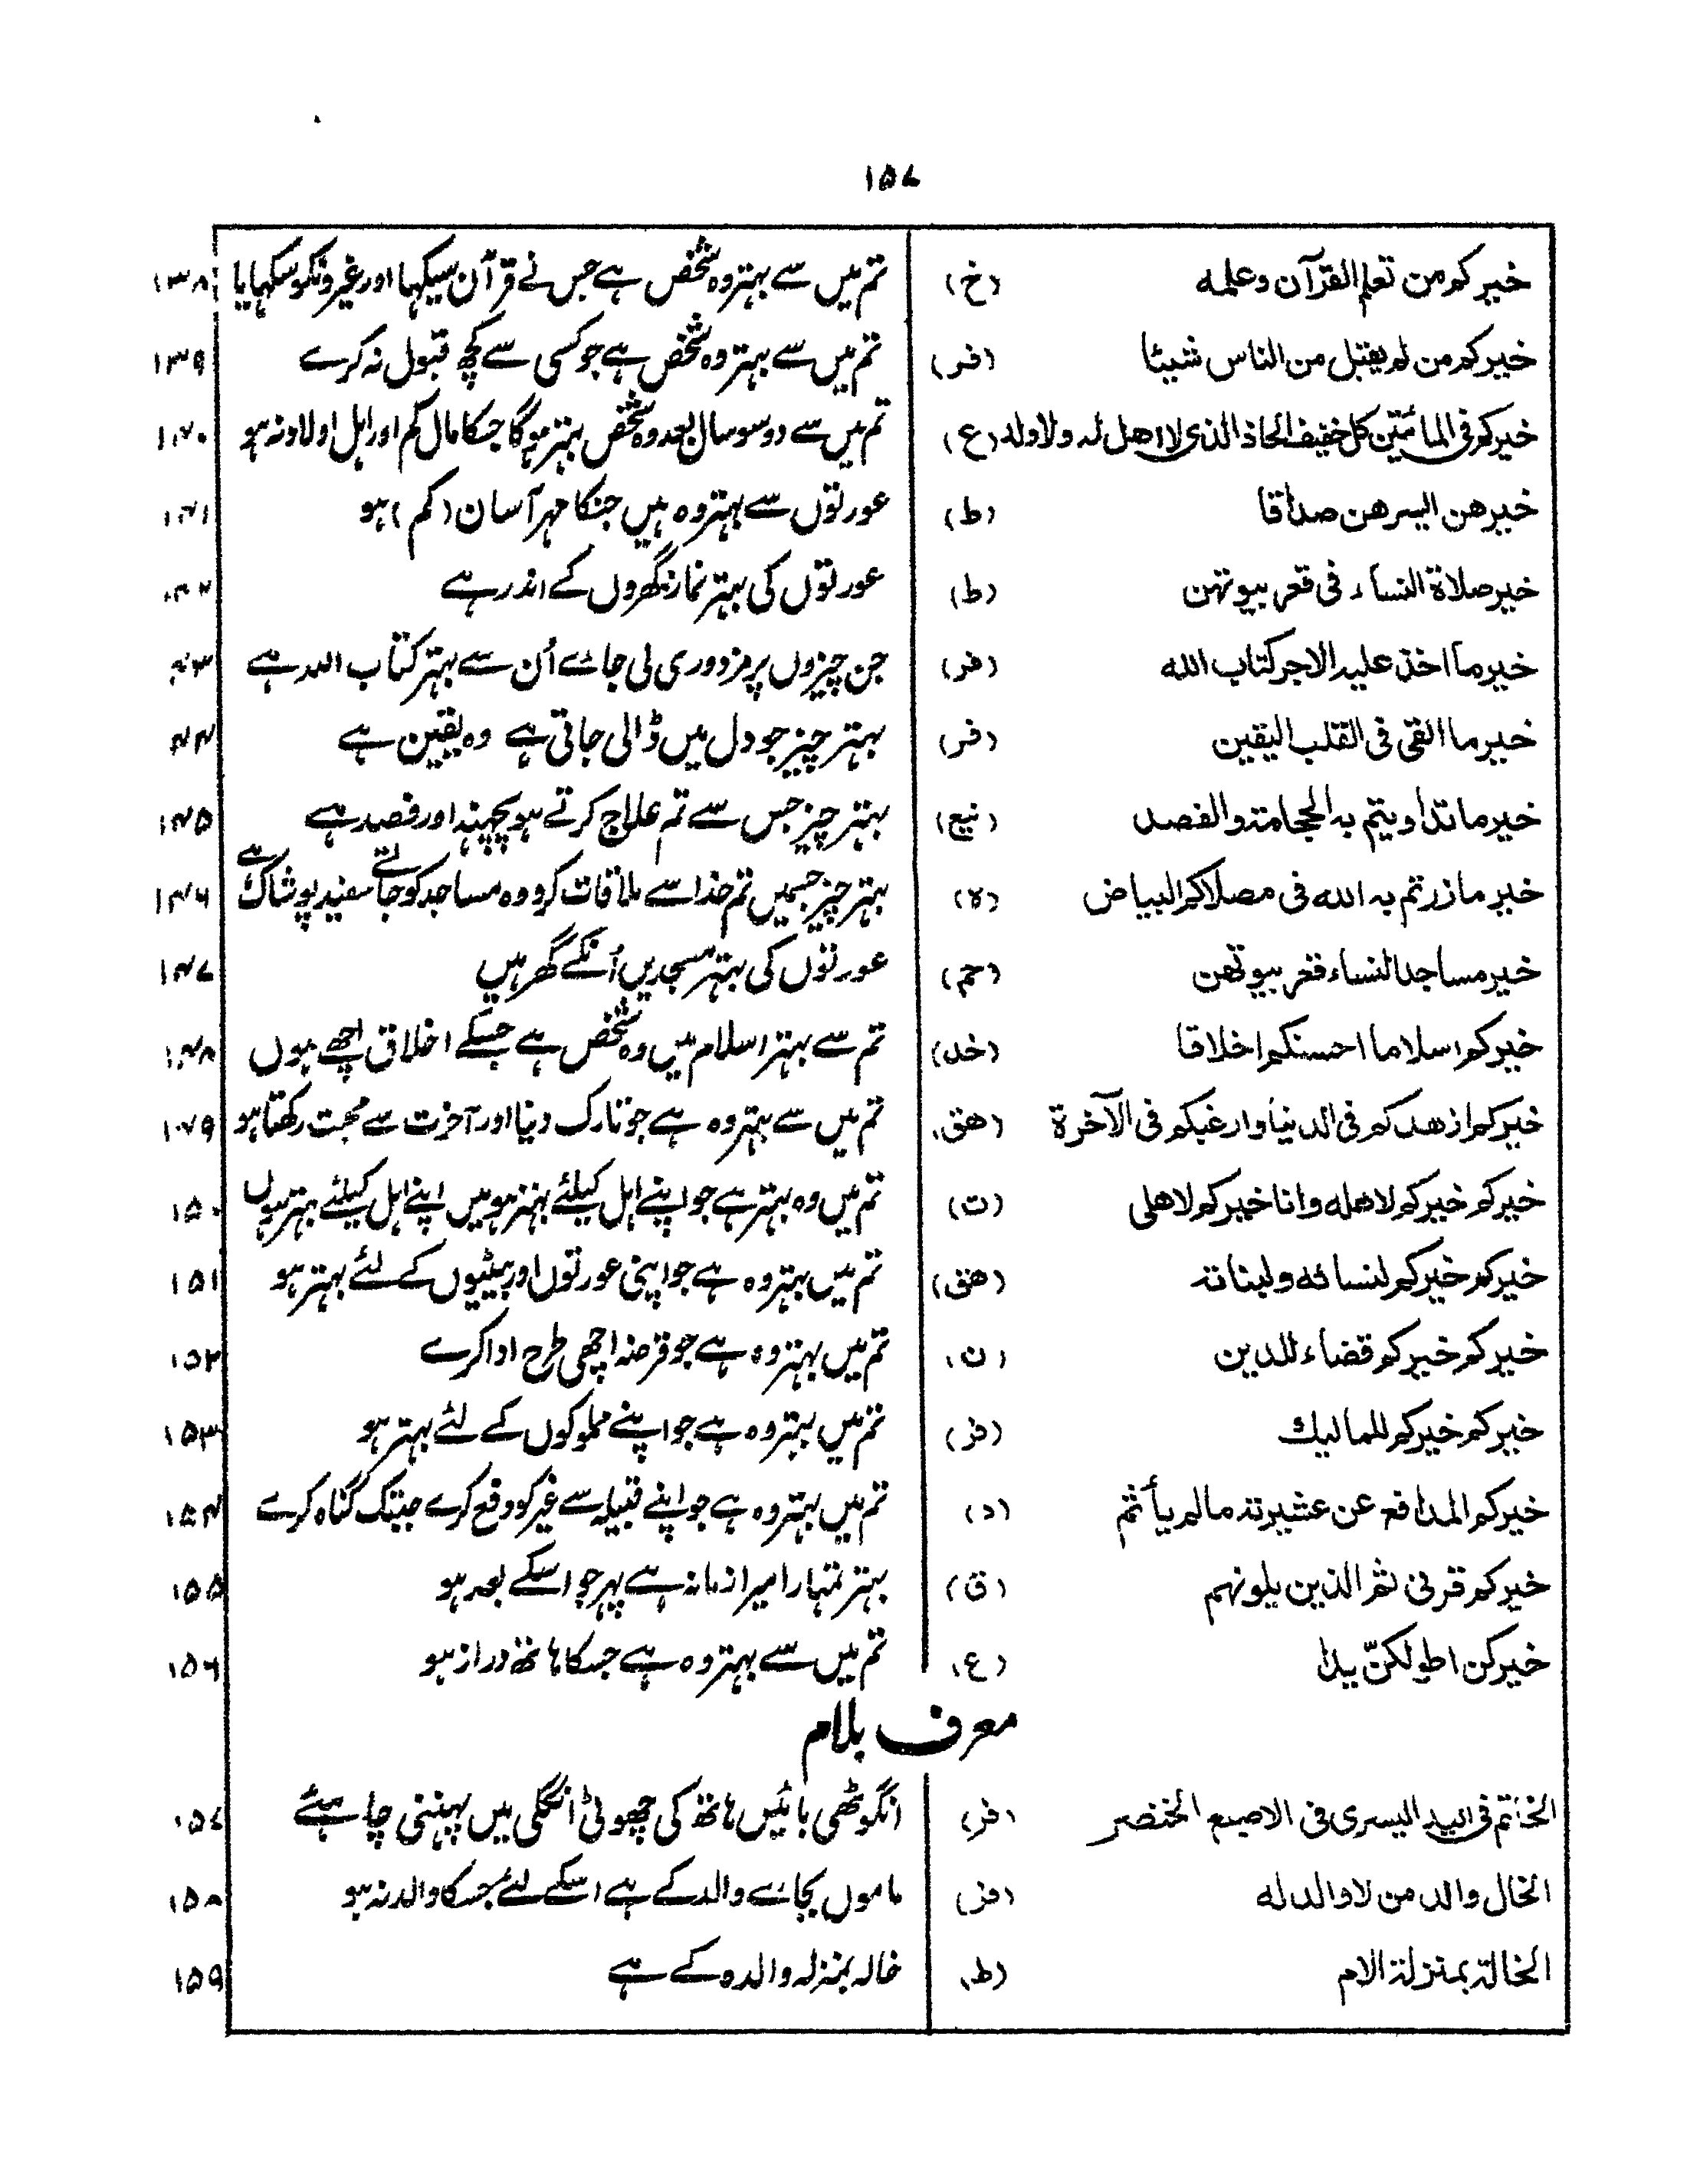 ۱۵۷
خیرکم من تعلم القرآن وعلمه (خ) تم میں سے بہتر وہ شخص ہے جس نے قرآن سیکہا اور غیرونکو سکہایا ۱۳۸
خیرکم من لم یقبل من الناس شیئا (فر) تم میں سے بہتر وہ شخص ہے جو کسی سے کچھ قبول نہ کرے ۱۳۹
خیرکم فی المائتین کل خفیف الحاذ الذی لا اهل له ولا ولد (ع) تم میں سے دو سو سال بعد وہ شخص بہتر ہوگا جسکا مال کم اور اہل اولاد نہ ہو ۱۴۰
خیرهن ایسرهن صداقا (ط) عورتوں سے بہتر وہ ہیں جنکا مہر آسان (کم) ہو ۱۴۱
خیر صلاة النساء فی قعر بیوتهن (ط) عورتوں کی بہتر نماز گھروں کے اندر ہے ۱۴۲
خیر ما اخذ علیه الاجر کتاب الله (فر) جن چیزوں پر مزدوری لی جاے اُن سے بہتر کتاب اللہ ہے ۱۴۳
خیر ما القی فی القلب الیقین (فر) بہتر چیز جو دل میں ڈالی جاتی ہے وہ یقین ہے ۱۴۴
خیر ما تداویتم به الحجامة والفصد (نیع) بہتر چیز جس سے تم علاج کرتے ہو پچہنہ اور فصد ہے ۱۴۵
خیر ما زرتم به الله فی مصلاکم البیاض (ہ) بہتر چیز جسمیں تم خدا سے ملاقات کرو وہ مساجد کو جاتے سفید پوشاک ہے ۱۴۶
خیر مساجد النساء قعر بیوتهن (حم) عورتوں کی بہتر مسجدیں اُنکے گھر ہیں ۱۴۷
خیرکم اسلاما احسنکم اخلاقا (خد) تم سے بہتر اسلام میں وہ شخص ہے جسکے اخلاق اچھے ہوں ۱۴۸
خیرکم ازهدکم فی الدنیا وارغبکم فی الآخرة (هق) تم میں سے بہتر وہ ہے جو تارک دنیا اور آخرت سے محبت رکھتا ہو ۱۴۹
خیرکم خیرکم لاهله وانا خیرکم لاهلی (ت) تم میں وہ بہتر ہے جو اپنے اہل کیلئے بہتر ہو میں اپنے اہل کیلئے بہتر ہوں ۱۵۰
خیرکم خیرکم لنسائه ولبناته (هق) تم میں بہتر وہ ہے جو اپنی عورتوں اور بیٹیوں کے لئے بہتر ہو ۱۵۱
خیرکم خیرکم قضاء للدین (ن) تم میں بہتر وہ ہے جو قرضہ اچھی طرح ادا کرے ۱۵۲
خیرکم خیرکم للممالیك (فر) تم میں بہتر وہ ہے جو اپنے مملوکوں کے لئے بہتر ہو ۱۵۳
خیرکم المدافع عن عشیرته مالم یأثم (د) تم میں بہتر وہ ہے جو اپنے قبیلہ سے غیر کو دفع کرے جبتک گناہ کرے ۱۵۴
خیرکم قرنی ثم الذین یلونهم (ق) بہتر تمہارا میرا زمانہ ہے پہر جو اسکے بعد ہو ۱۵۵
خیرکن اطولکنّ یدا (ع) تم میں سے بہتر وہ ہے جسکا ہاتھ دراز ہو ۱۵۶
معرف بلام
الخاتم فی الید الیسری فی الاصبع الخنصر (فر) انگوٹھی بائیں ہاتھ کی چھوٹی انگلی میں پہننی چاہیئے ۱۵۷
الخال والد من لا والد له (فر) ماموں بجاے والد کے ہے اسکے لئے جسکا والد نہ ہو ۱۵۸
الخالة بمنزلة الام (ط) خالہ بمنزلہ والدہ کے ہے ۱۵۹